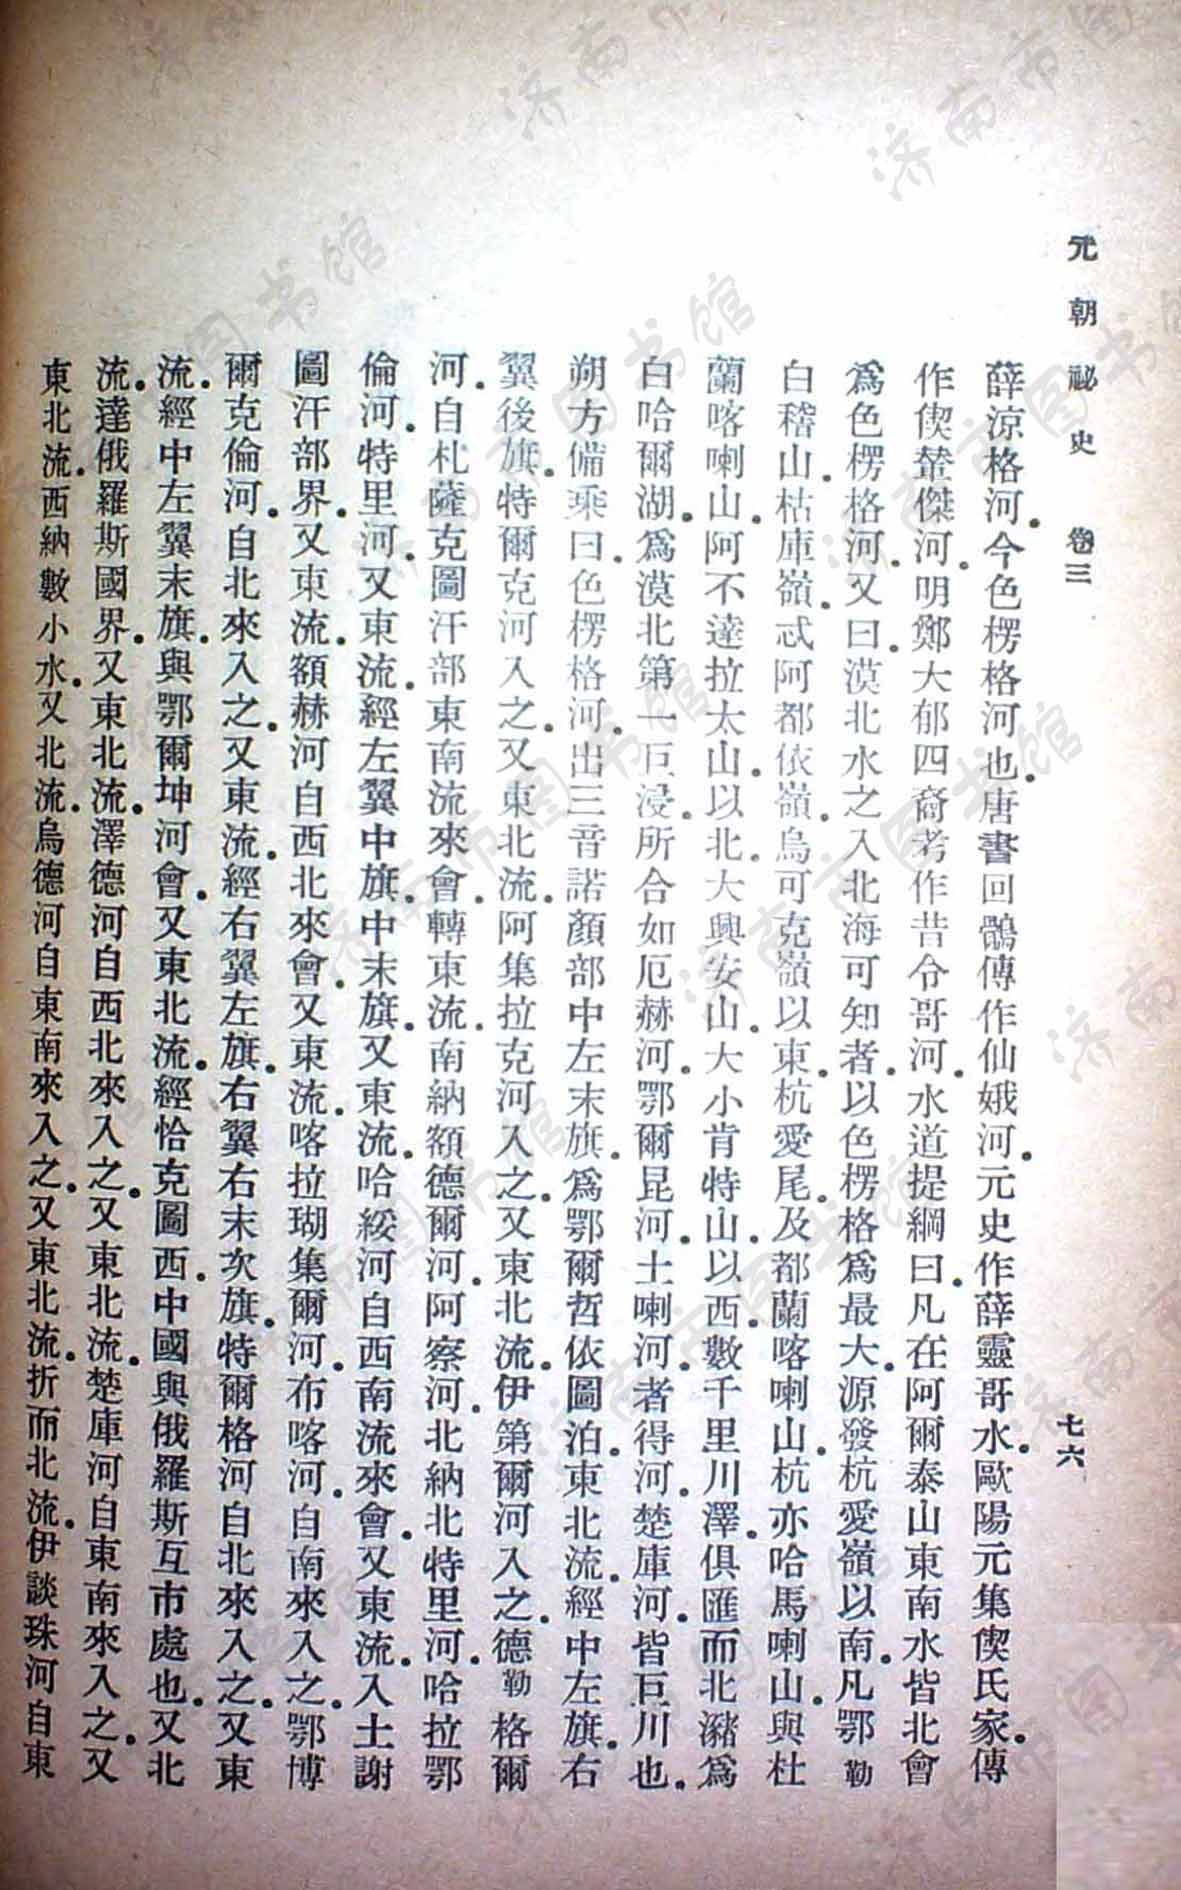 元朝祕史 卷三 七六
薛涼格河.今色楞格河也.唐書回鶻傳作仙娥河.元史作薛靈哥水.歐陽元集偰氏家傳
作偰輦傑河.明鄭大郁四裔考作昔令哥河.水道提綱曰.凡在阿爾泰山東南水皆北會
爲色楞格河.又曰.漠北水之入北海可知者.以色楞格爲最大.源發杭愛嶺以南.凡鄂勒
白稽山.枯庫嶺.忒阿都依嶺.烏可克嶺以東.杭愛尾.及都蘭喀喇山.杭亦哈馬喇山.與杜
蘭喀喇山.阿不達拉太山.以北.大興安山.大小肯特山.以西.數千里川澤.俱匯而北瀦爲
白哈爾湖.爲漠北第一巨浸.所合如厄赫河.鄂爾昆河.土喇河.者得河.楚庫河.皆巨川也.
朔方備乘曰.色楞格河.出三音諾顏部中左末旗.爲鄂爾哲依圖泊.東北流.經中左旗.右
翼後旗.特爾克河入之.又東北流.阿集拉克河入之.又東北流.伊第爾河入之.德勒格爾
河.自札薩克圖汗部東南流來會.轉東流.南納額德爾河.阿察河.北納北特里河.哈拉鄂
倫河.特里河.又東流.經左翼中旗.中末旗.又東流.哈綏河自西南流來會.又東流.入土謝
圖汗部界.又東流.額赫河自西北來會.又東流.喀拉瑚集爾河.布喀河.自南來入之.鄂博
爾克倫河.自北來入之.又東流.經右翼左旗.右翼右末次旗.特爾格河自北來入之.又東
流.經中左翼末旗.與鄂爾坤河會.又東北流.經恰克圖西.中國與俄羅斯互市處也.又北
流.達俄羅斯國界.又東北流.澤德河自西北來入之.又東北流.楚庫河自東南來入之.又
東北流.西納數小水.又北流.烏德河自東南來入之.又東北流.折而北流.伊談珠河自東